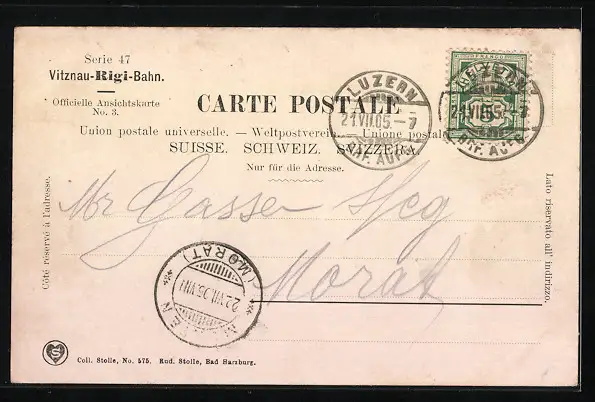 Serie 47
Vitznau-Rigi-Bahn.
Officielle Ansichtskarte
No. 3.
CARTE POSTALE
Union postale universelle. — Weltpostverein. — Unione postale
SUISSE. SCHWEIZ. SVIZZERA.
Nur für die Adresse.
LUZERN
21.VII.05.-7
BRF. AUFG.
FRANCO
LUZERN
21.VII.05.
BRF. AUFG.
Côté réservé à l'adresse.
Lato riservato all' indirizzo.
Mr Gasser
Morat
(MORAT)
22.VII.05.VIII
S
Coll. Stolle, No. 575. Rud. Stolle, Bad Harzburg.